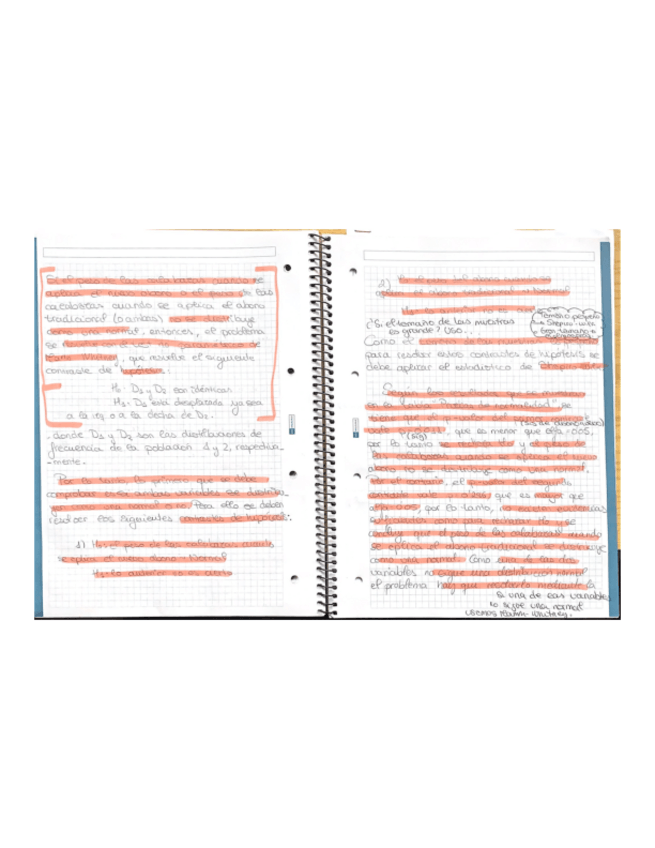 Si el peso de las calabazas cuando se
aplica el nuevo abono o el peso de las
calabazas cuando se aplica el abono
tradicional (o ambas) no se distribuye
como una normal, entonces, el problema
se
Mann Whitney, que resuelve el siguiente
contraste de hipótesis:
H0: D1 y D2 son idénticas
H1: D2 está desplazada ya sea
a la izq o a la decha de D1.
- donde D1 y D2 son las distribuciones de
frecuencia de la población 1 y 2, respectiva-
-mente.
Por lo tanto, lo primero que se debe
comprobar es si ambas variables se distribu-
yen como una normal o no. Para ello se deben
resolver los siguientes contrastes de hipótesis:
1) H0: el peso de las calabazas cuando
se aplica el nuevo abono → Normal
H1: lo anterior no es cierto
el peso del abono cuando se
el abono tradicional → Normal
H1: lo anterior no es cierto
Tamaño pequeño
→ Shapiro-Wilk
Gran tamaño →
¿Si el tamaño de las muestras
es grande? Uso...
Como el
para resolver estos contrastes de hipótesis se
debe aplicar el estadístico de Shapiro-Wilk
Según los resultados que se muestran
en la tabla "Pruebas de normalidad" se
tiene que el p-valor del
vale, que es menor que alfa = 0,05,
(sig)
por lo tanto se rechaza H0 y el peso de
las calabazas cuando se aplica el
abono no se distribuye como una normal.
Por el contrario, el p-valor del segundo
contraste vale, que es mayor que
alfa = 0,05, por lo tanto, no existen evidencias
suficientes como para rechazar H0, se
concluye que el peso de las calabazas cuando
se aplica el abono tradicional se distribuye
como una normal. Como una de las dos
variables no sigue una distribución normal
el problema hay que resolverlo mediante la
Si una de las variables
no sigue una normal
usamos Mann-Whitney.